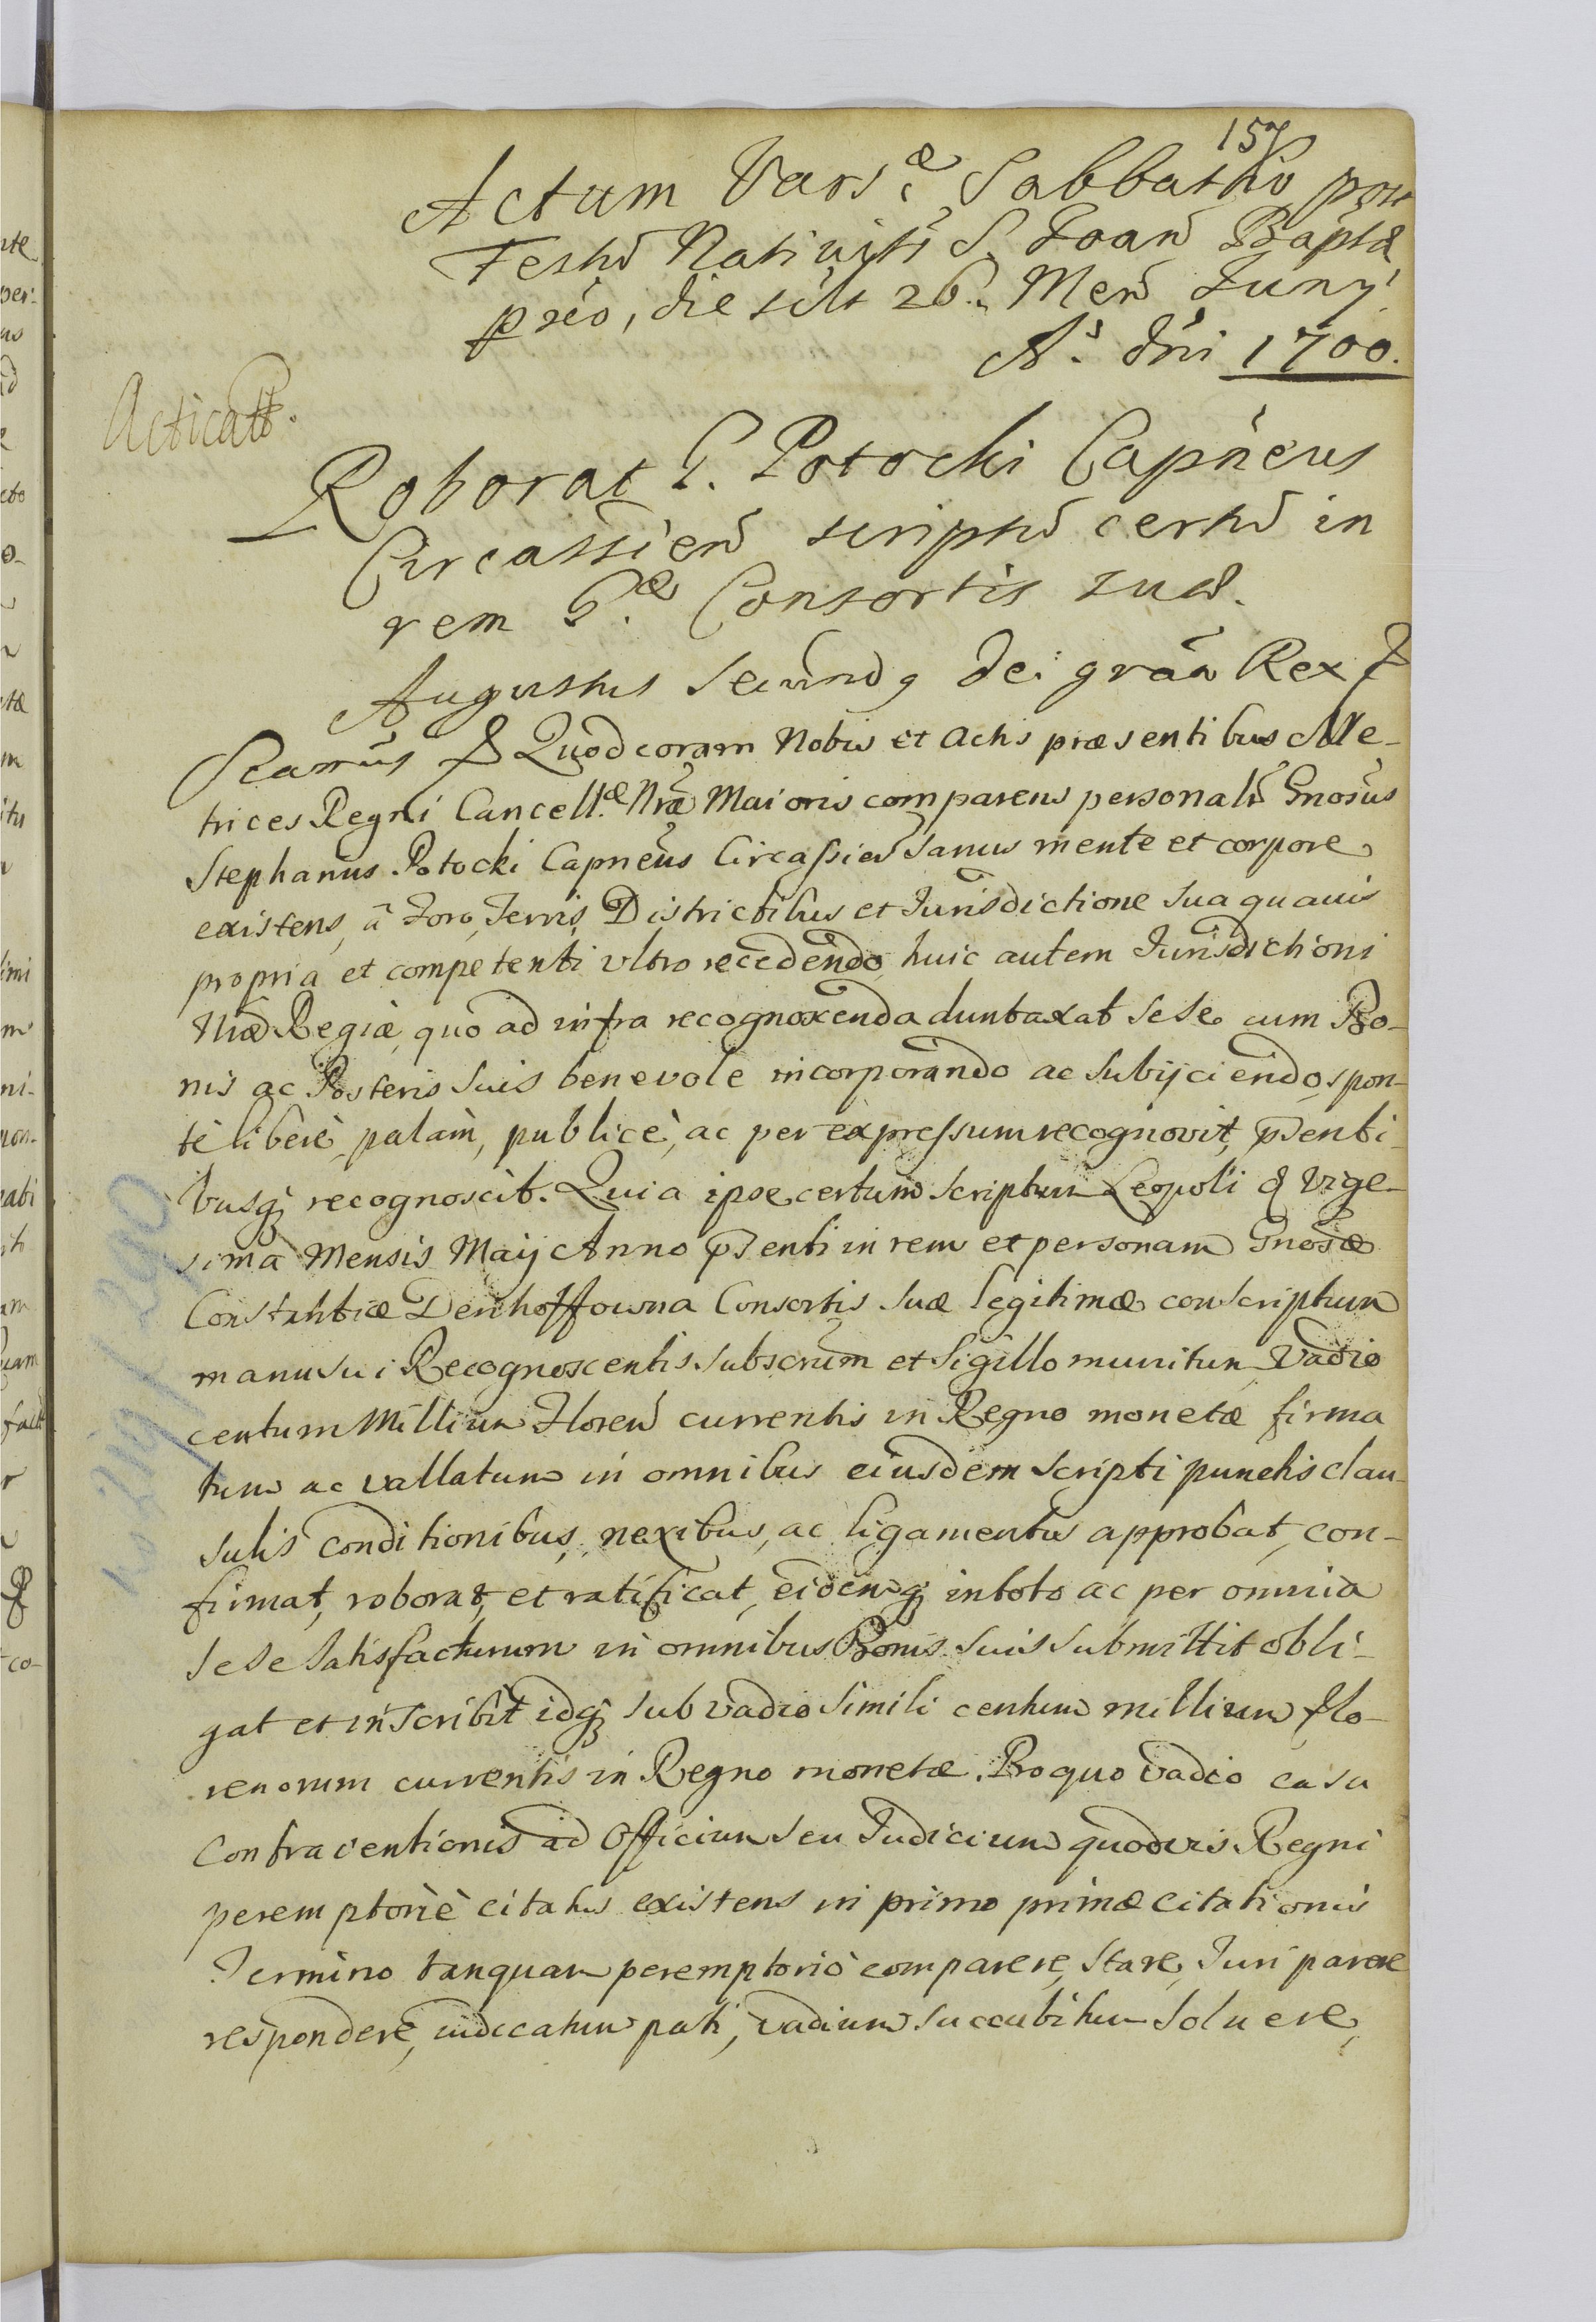 157
Actum Varsae Sabbatho post
Festũ Nativitis S. Joañ Bapta
prẽo, die silt 26. Meñ Junij
Ao dñi 1700.
Acticatt.
Roborat G. Potocki Capñeus
Circassieñ scriptũ certũ in
rem G.ae Consortis suæ.
Augustus Secundq Dei grãa Rex
Quod coram Nobis et Actis præsentibus Me-
trices Regni Cancell.æ Nræ Maioris comparens personalr Gnosus
Stephanus Potocki Capneus Circassieñ sanus mente et corpore
existens, â Foro, Terris, Districtibus et Jurisdictione sua quavis
propria et competenti ultro recedendo, huic autem Jurisdictioni
Nræ Regiæ, quo ad infra recognoscenda duntaxat sese cum Bo-
nis ac Posteris suis benevole incorporando ac subijciendo, spon-
tè liberè, palàm, publicè, ac per expressum recognovit, psenti-
busq recognoscit. Quia ipse certum scriptum Leopoli d Vige-
sima Mensis Maij Anno psenti in rem et personam Gnosæ
Constantiæ Denhoffowna Consortis suæ legitimæ conscriptum
manu sui Recognoscentis subscrum et sigillo munitum, Vadio
centum Millium Floreñ currentis in Regno monetæ firma
tum ac vallatum in omnibus eiusdem scripti punctis clau-
sulis conditionibus, nexibus, ac ligamentis approbat, con-
firmat, roborat, et ratificat, eidemq in toto ac per omnia
sese satisfacturum in omnibus Bonis suis submittit obli-
gat et inscribit idq sub vadio simili centum millium flo-
renorum currentis in Regno monetæ. Pro quo vadio casu
contraventionis ad Officium seu Judicium quodvis Regni
peremptoriè citatus existens in primo primæ citationis
Termino tanquam peremptorio comparere, stare, Juri parere
respondere, iudicatum pati, vadium succubitum soluere,